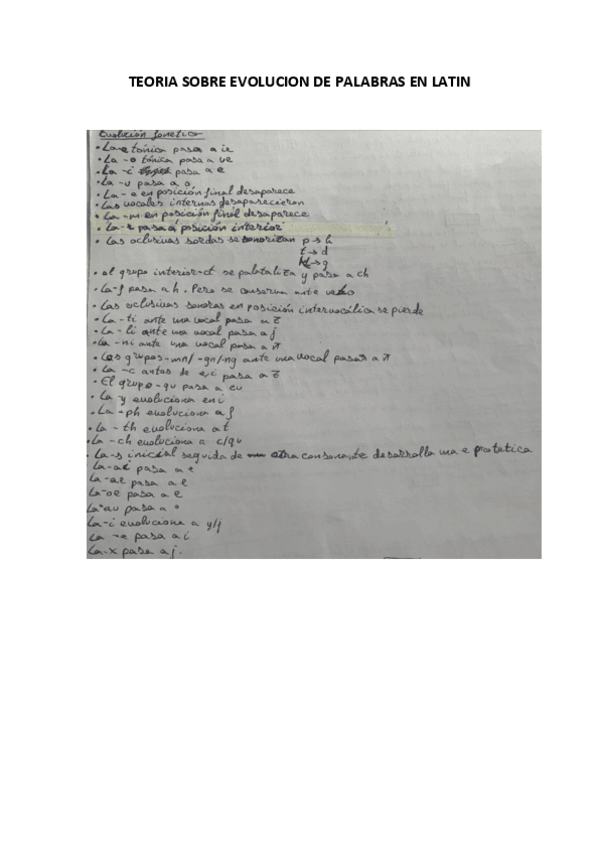 TEORIA SOBRE EVOLUCION DE PALABRAS EN LATIN
Evolución fonética
• La-e tónica pasa a ie
• La -o tónica pasa a ue
• La -i pasa a e
• La -u pasa a o
• La -e en posición final desaparece
• Las vocales internas desaparecieron
• La -m en posición final desaparece
• La -r pasa a posición interior
• Las oclusivas sordas se sonorizan p→b
t→d
k→g
• el grupo interior -ct se palataliza y pasa a ch
• La-f pasa a h. Pero se conservan ante
• Las oclusivas sonoras en posición intervocálica se pierde
• La -ti ante una vocal pasa a z
• La -li ante una vocal pasa a j
• La -ni ante una vocal pasa a ñ
• Los grupos -mn/ -gn/ng ante una vocal pasan a ñ
• La -c antes de e,i pasa a z
• El grupo -qu pasa a cu
• La -y evoluciona en i
• La -ph evoluciona a f
• La -th evoluciona a t
• La -ch evoluciona a c/qu
• La -s inicial seguida de otra consonante desarrolla una e protética
La -ai pasa a e
La -ae pasa a e
La -oe pasa a e
La -au pasa a o
La -i evoluciona a y/j
La -e pasa a i
La -x pasa a j.